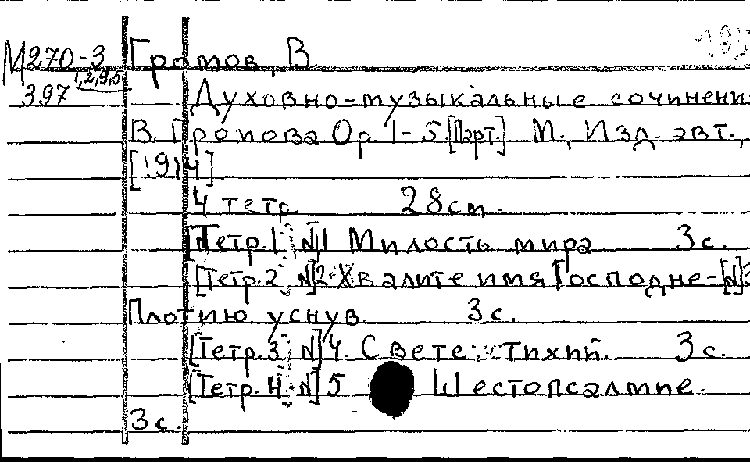 М270-3 Громов, В.
1,2,9,5
397 Духовно-музыкальные сочинени
В. Громова Ор. 1-5 [Парт.] М., Изд. авт.,
[1914]
4 тетр. 28см.
[Тетр.1 N]1 Милость мира 3с.
[Тетр.2 N]2 Хвалите имя Господне-[N]3
Плотию уснув 3с.
[Тетр.3 N]4 Свете тихий. 3с.
[Тетр.4 N]5 Шестопсалмие.
3с.